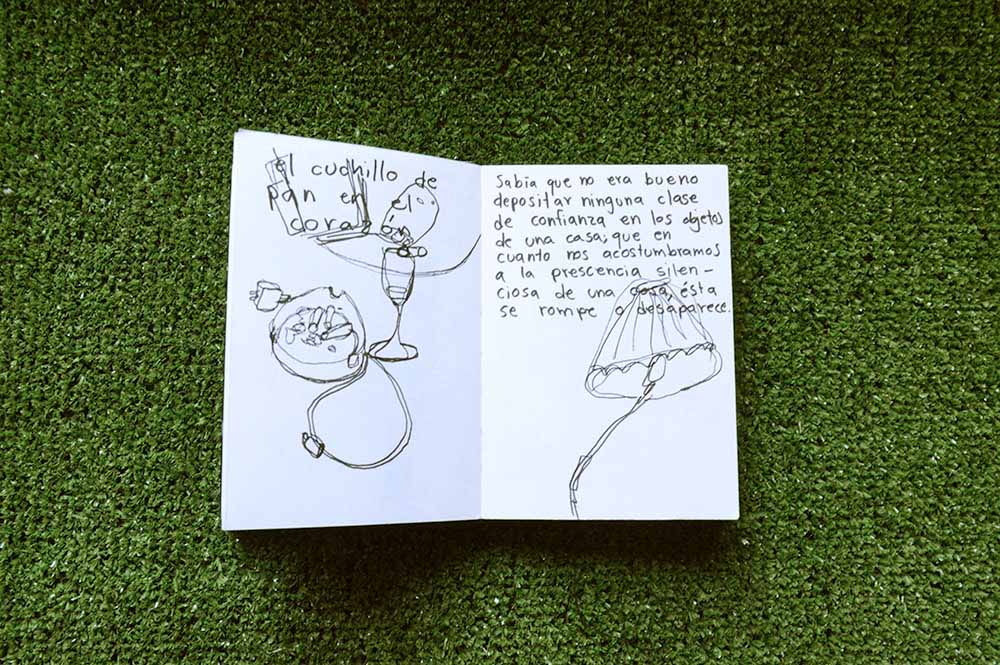 el cuchillo de
pan en el
corazón
Sabía que no era bueno
depositar ninguna clase
de confianza en los objetos
de una casa; que en
cuanto nos acostumbramos
a la prescencia silen-
ciosa de una cosa, ésta
se rompe o desaparece.